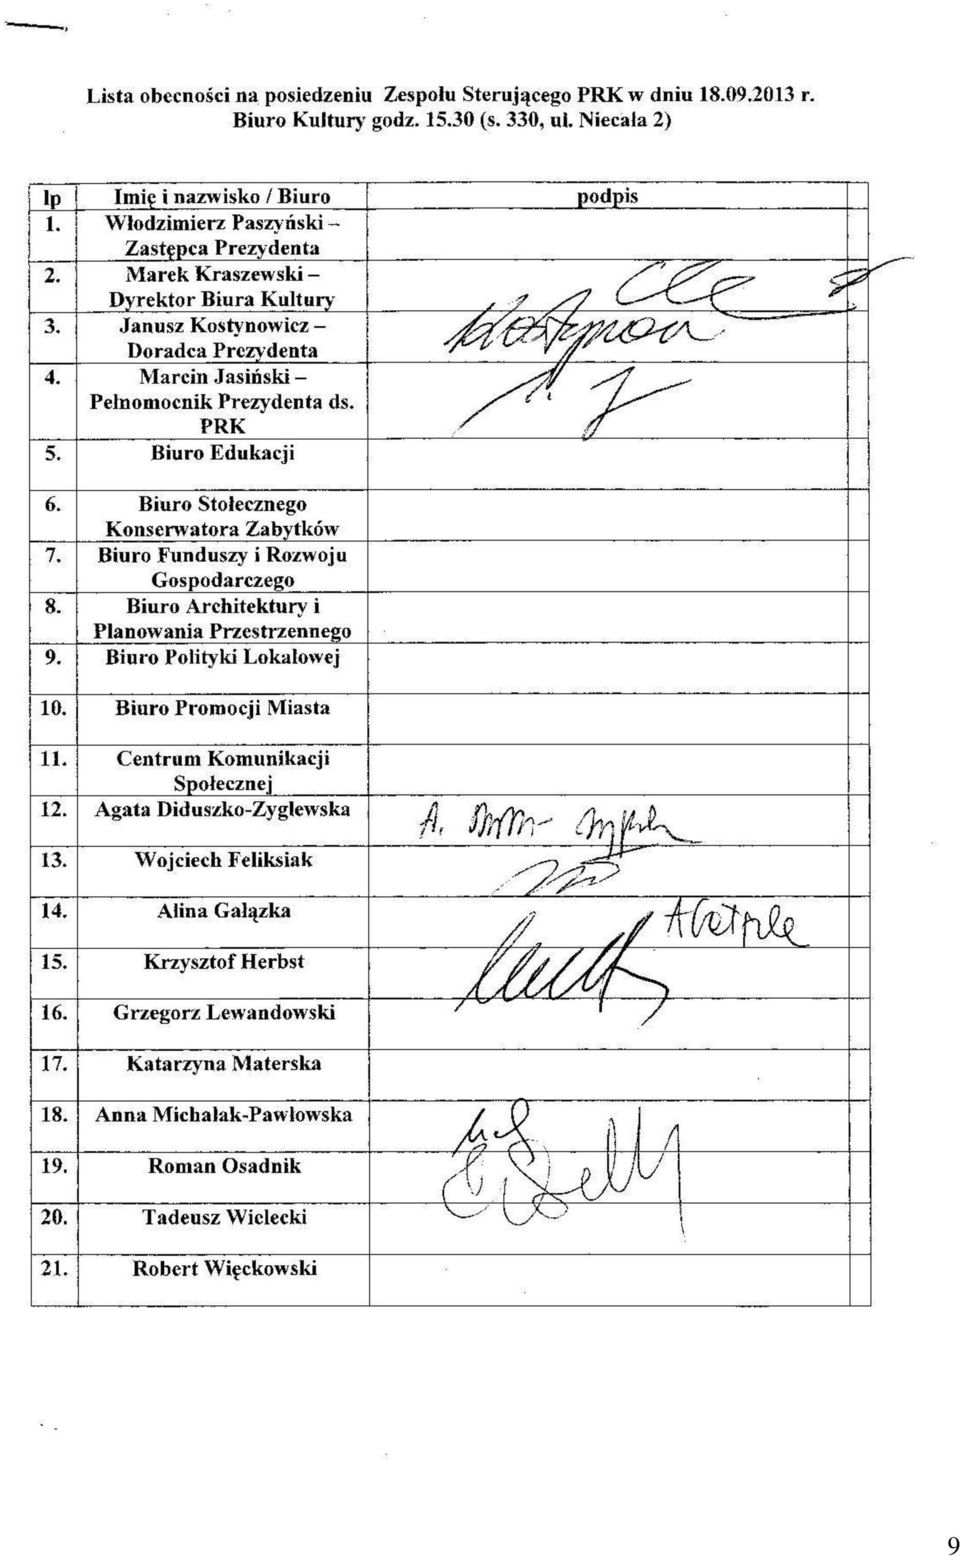 Lista obecności na posiedzeniu Zespołu Sterującego PRK w dniu 18.09.2013 r.
Biuro Kultury godz. 15.30 (s. 330, ul. Niecała 2)
lp Imię i nazwisko / Biuro podpis
1. Włodzimierz Paszyński –
Zastępca Prezydenta
2. Marek Kraszewski –
Dyrektor Biura Kultury
3. Janusz Kostynowicz –
Doradca Prezydenta
4. Marcin Jasiński –
Pełnomocnik Prezydenta ds.
PRK
5. Biuro Edukacji
6. Biuro Stołecznego
Konserwatora Zabytków
7. Biuro Funduszy i Rozwoju
Gospodarczego
8. Biuro Architektury i
Planowania Przestrzennego
9. Biuro Polityki Lokalowej
10. Biuro Promocji Miasta
11. Centrum Komunikacji
Społecznej
12. Agata Diduszko-Zyglewska A.
13. Wojciech Feliksiak
14. Alina Gałązka
15. Krzysztof Herbst
16. Grzegorz Lewandowski
17. Katarzyna Materska
18. Anna Michalak-Pawłowska
19. Roman Osadnik
20. Tadeusz Wielecki
21. Robert Więckowski
9